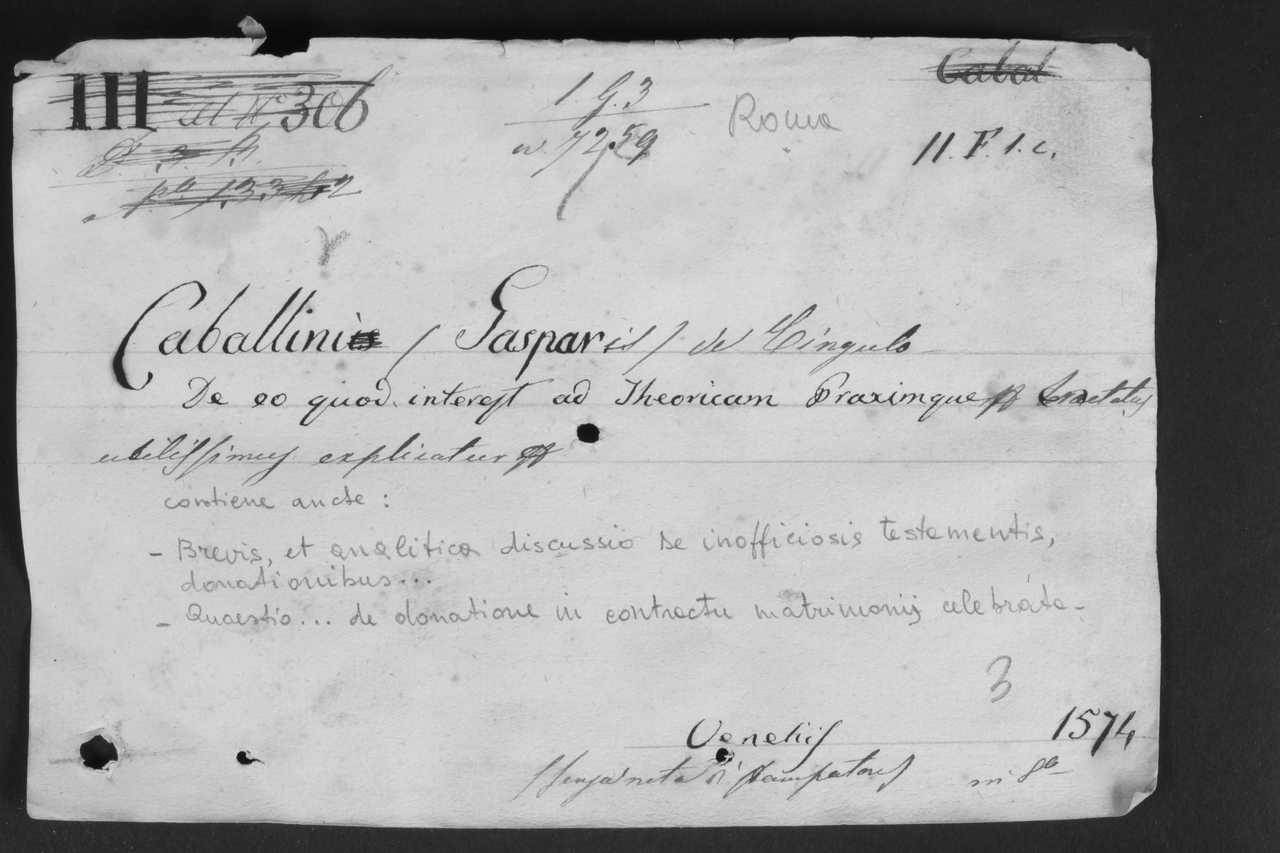 III 306
1. G. 3
n. 7259
Roma
Cabal
11. F. 1. c.
Caballini (Gasparis) de Cingulo
De eo quod interest ad Theoricam Praximque tractatus
utilissimus explicatur
contiene anche :
- Brevis, et analitica discussio de inofficiosis testamentis,
donationibus...
- Quaestio... de donatione in contractu matrimonij celebrata -
3
Venetiis 1574
(senza nota di stampatore) in 8º